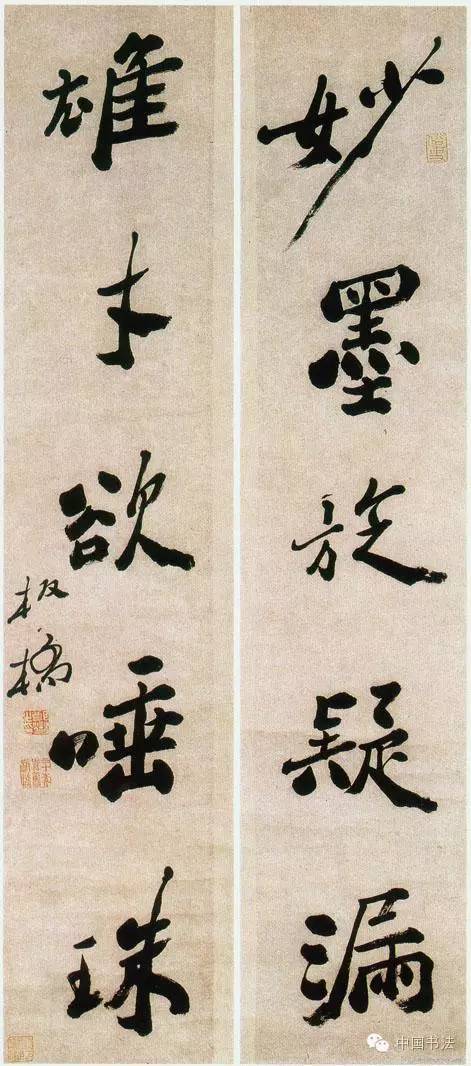 妙墨疑
漏
雄才欲唾珠
板桥
中国书法